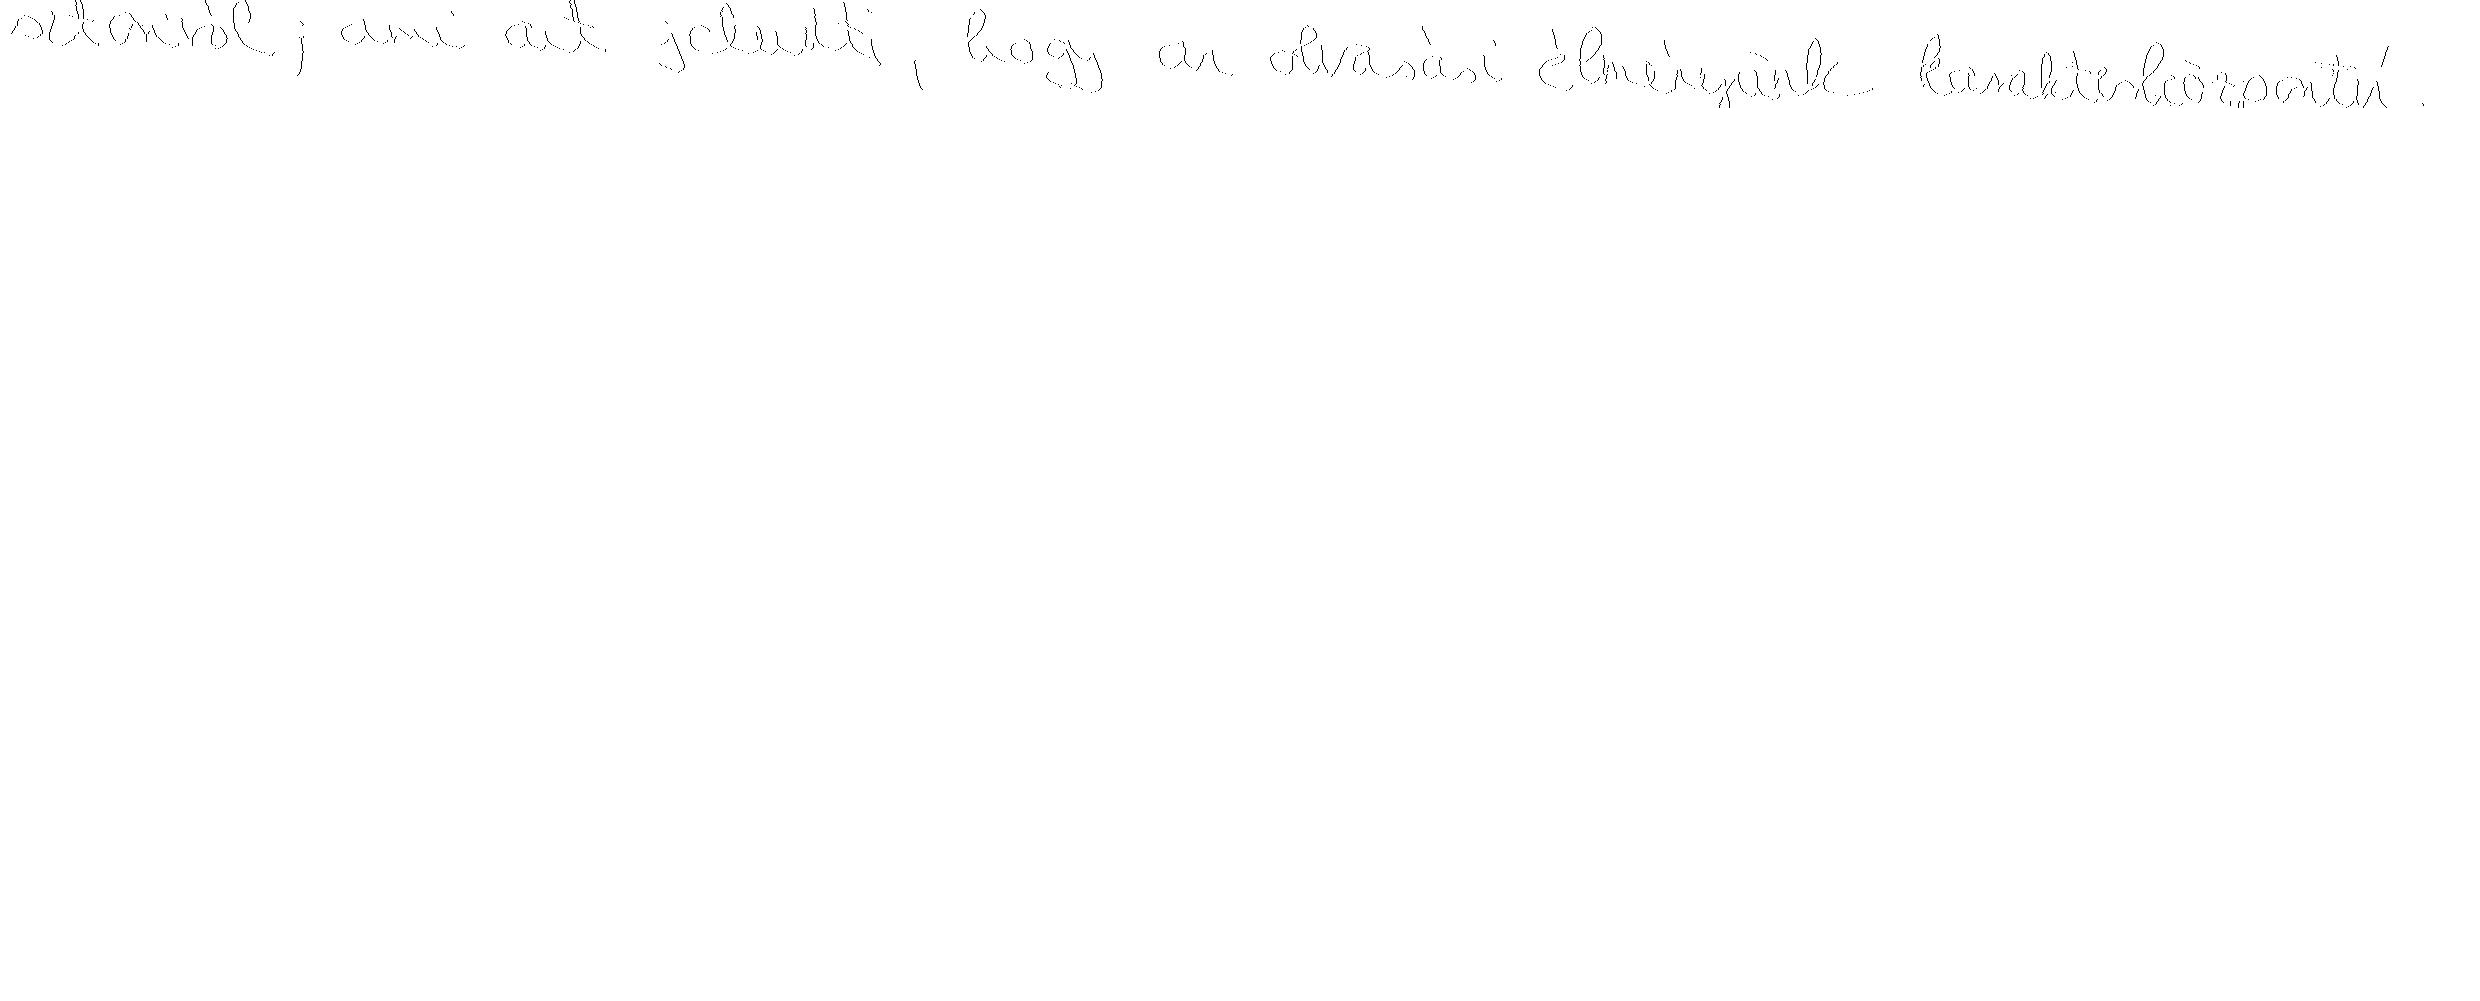 sztorinál, ami azt jelenti, hogy az olvasási élményünk karakterközpontú.